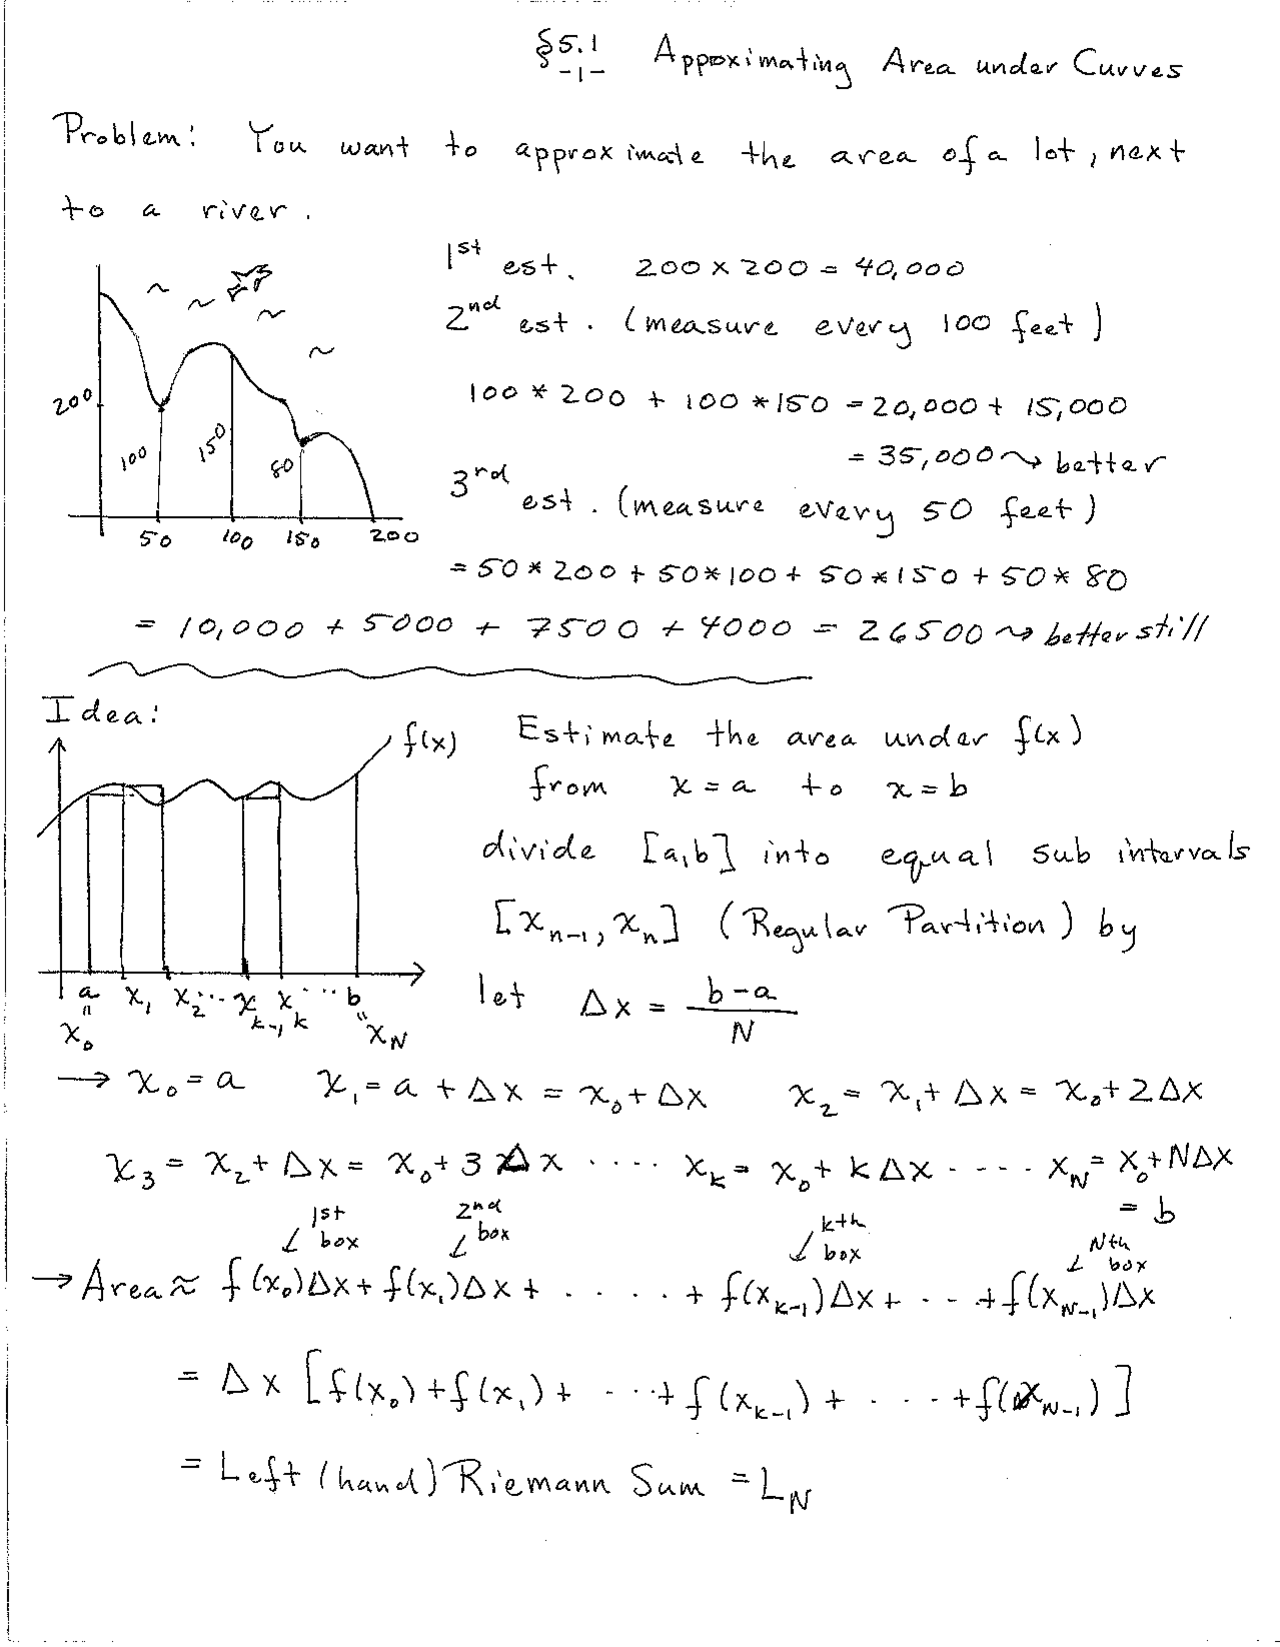 §5.1 Approximating Area under Curves
-1-
Problem: You want to approximate the area of a lot, next
to a river.
1st est. 200 x 200 = 40,000
2nd est. (measure every 100 feet)
100 * 200 + 100 * 150 = 20,000 + 15,000
= 35,000 ⇝ better
3rd est. (measure every 50 feet)
= 50 * 200 + 50 * 100 + 50 * 150 + 50 * 80
= 10,000 + 5000 + 7500 + 4000 = 26500 ⇝ better still
200
100 150 80
50 100 150 200
Idea:
f(x)
Estimate the area under f(x)
from x = a to x = b
divide [a,b] into equal sub intervals
[x_{n-1}, x_n] (Regular Partition) by
let Δx = (b-a)/N
a x_1 x_2 ... x_{k-1} x_k ... b
" "
x_0 x_N
→ x_0 = a x_1 = a + Δx = x_0 + Δx x_2 = x_1 + Δx = x_0 + 2Δx
x_3 = x_2 + Δx = x_0 + 3Δx .... x_k = x_0 + kΔx .... x_N = x_0 + NΔx
= b
1st box 2nd box kth box Nth box
→ Area ≈ f(x_0)Δx + f(x_1)Δx + ..... + f(x_{k-1})Δx + ... + f(x_{N-1})Δx
= Δx [f(x_0) + f(x_1) + ... + f(x_{k-1}) + .... + f(x_{N-1})]
= Left (hand) Riemann Sum = L_N